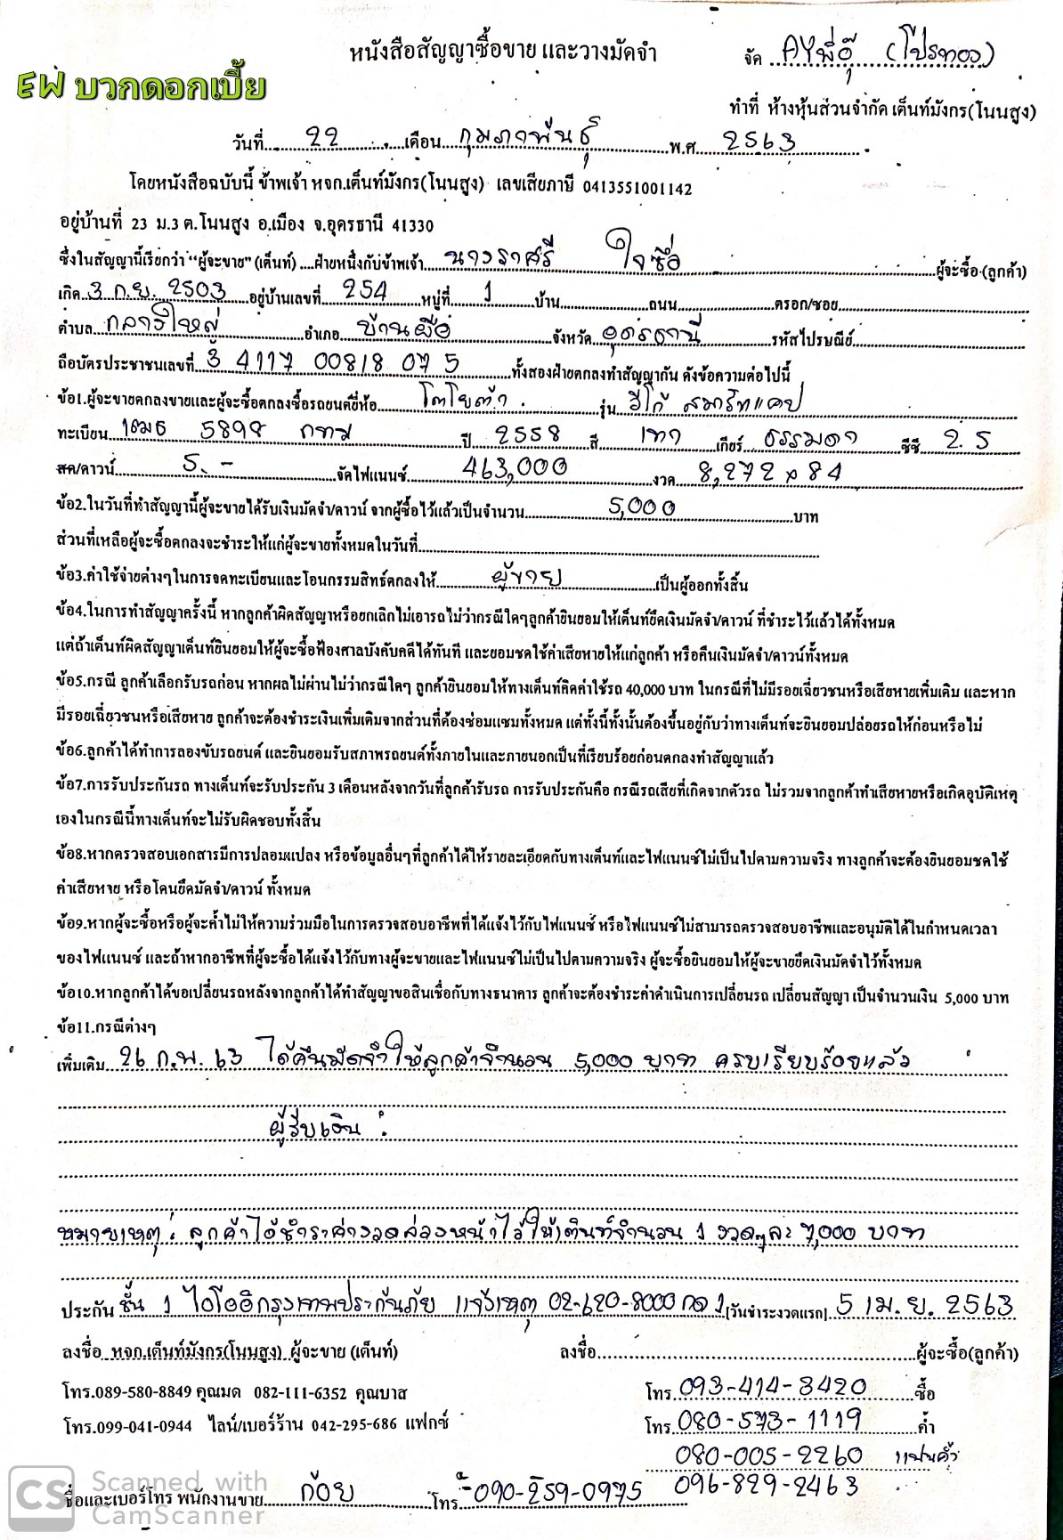 หนังสือสัญญาซื้อขาย และวางมัดจำ
จัด AYพี่อุ๊ (โปรทอง)
EW บวกดอกเบี้ย
ทำที่ ห้างหุ้นส่วนจำกัด เต็นท์มังกร(โนนสูง)
วันที่ 22 เดือน กุมภาพันธุ์ พ.ศ. 2563
โดยหนังสือฉบับนี้ ข้าพเจ้า หจก.เต็นท์มังกร(โนนสูง) เลขเสียภาษี 0413551001142
อยู่บ้านที่ 23 ม.3 ต.โนนสูง อ.เมือง จ.อุดรธานี 41330
ซึ่งในสัญญานี้เรียกว่า "ผู้จะขาย" (เต็นท์) ....ฝ่ายหนึ่งกับข้าพเจ้า นางราศรี ใจซื่อ ผู้จะซื้อ (ลูกค้า)
เกิด 3 ก.ย. 2503 อยู่บ้านเลขที่ 254 หมู่ที่ 1 บ้าน ถนน ตรอก/ซอย
ตำบล กลางใหญ่ อำเภอ บ้านผือ จังหวัด อุดรธานี รหัสไปรษณีย์
ถือบัตรประชาชนเลขที่ 3 4117 00818 07 5 ทั้งสองฝ่ายตกลงทำสัญญากัน ดังข้อความต่อไปนี้
ข้อ1.ผู้จะขายตกลงขายและผู้จะซื้อตกลงซื้อรถยนต์ยี่ห้อ โตโยต้า รุ่น วีโก้ สมาร์ทแคป
ทะเบียน 5898 กทม ปี 2558 สี เทา เกียร์ ธรรมดา ซีซี 2.5
สด/ดาวน์ 5.- จัดไฟแนนซ์ 463,000 งวด 8,272 x 84
ข้อ2.ในวันที่ทำสัญญานี้ผู้จะขายได้รับเงินมัดจำ/ดาวน์ จากผู้ซื้อไว้แล้วเป็นจำนวน 5,000 บาท
ส่วนที่เหลือผู้จะซื้อตกลงจะชำระให้แก่ผู้จะขายทั้งหมดในวันที่
ข้อ3.ค่าใช้จ่ายต่างๆในการจดทะเบียนและโอนกรรมสิทธ์ตกลงให้ ผู้ขาย เป็นผู้ออกทั้งสิ้น
ข้อ4.ในการทำสัญญาครั้งนี้ หากลูกค้าผิดสัญญาหรือยกเลิกไม่เอารถไม่ว่ากรณีใดๆลูกค้ายินยอมให้เต็นท์ยึดเงินมัดจำ/ดาวน์ ที่ชำระไว้แล้วได้ทั้งหมด
แต่ถ้าเต็นท์ผิดสัญญาเต็นท์ยินยอมให้ผู้จะซื้อฟ้องศาลบังคับคดีได้ทันที และยอมชดใช้ค่าเสียหายให้แก่ลูกค้า หรือคืนเงินมัดจำ/ดาวน์ทั้งหมด
ข้อ5.กรณี ลูกค้าเลือกรับรถก่อน หากผลไม่ผ่านไม่ว่ากรณีใดๆ ลูกค้ายินยอมให้ทางเต็นท์คิดค่าใช้รถ 40,000 บาท ในกรณีที่ไม่มีรอยเฉี่ยวชนหรือเสียหายเพิ่มเติม และหาก
มีรอยเฉี่ยวชนหรือเสียหาย ลูกค้าจะต้องชำระเงินเพิ่มเติมจากส่วนที่ต้องซ่อมแซมทั้งหมด แต่ทั้งนี้ทั้งนั้นต้องขึ้นอยู่กับว่าทางเต็นท์จะยินยอมปล่อยรถให้ก่อนหรือไม่
ข้อ6.ลูกค้าได้ทำการลองขับรถยนต์ และยินยอมรับสภาพรถยนต์ทั้งภายในและภายนอกเป็นที่เรียบร้อยก่อนตกลงทำสัญญาแล้ว
ข้อ7.การรับประกันรถ ทางเต็นท์จะรับประกัน 3 เดือนหลังจากวันที่ลูกค้ารับรถ การรับประกันคือ กรณีรถเสียที่เกิดจากตัวรถ ไม่รวมจากลูกค้าทำเสียหายหรือเกิดอุบัติเหตุ
เองในกรณีนี้ทางเต็นท์จะไม่รับผิดชอบทั้งสิ้น
ข้อ8.หากตรวจสอบเอกสารมีการปลอมแปลง หรือข้อมูลอื่นๆที่ลูกค้าได้ให้รายละเอียดกับทางเต็นท์และไฟแนนซ์ไม่เป็นไปตามความจริง ทางลูกค้าจะต้องยินยอมชดใช้
ค่าเสียหาย หรือโดนยึดมัดจำ/ดาวน์ ทั้งหมด
ข้อ9.หากผู้จะซื้อหรือผู้จะค้ำไม่ให้ความร่วมมือในการตรวจสอบอาชีพที่ได้แจ้งไว้กับไฟแนนซ์ หรือไฟแนนซ์ไม่สามารถตรวจสอบอาชีพและอนุมัติได้ในกำหนดเวลา
ของไฟแนนซ์ และถ้าหากอาชีพที่ผู้จะซื้อได้แจ้งไว้กับทางผู้จะขายและไฟแนนซ์ไม่เป็นไปตามความจริง ผู้จะซื้อยินยอมให้ผู้จะขายยึดเงินมัดจำไว้ทั้งหมด
ข้อ10.หากลูกค้าได้ขอเปลี่ยนรถหลังจากลูกค้าได้ทำสัญญาขอสินเชื่อกับทางธนาคาร ลูกค้าจะต้องชำระค่าดำเนินการเปลี่ยนรถ เปลี่ยนสัญญา เป็นจำนวนเงิน 5,000 บาท
ข้อ11.กรณีต่างๆ
เพิ่มเติม 26 ก.พ. 63 ได้คืนมัดจำให้ลูกค้าจำนวน 5,000 บาท ครบเรียบร้อยแล้ว
ผู้รับเงิน :
หมายเหตุ : ลูกค้าได้ชำระค่างวดล่วงหน้าไว้ให้เต็นท์จำนวน 1 งวดๆละ 7,000 บาท
ประกัน ชั้น 1 ไอโออิกรุงเทพประกันภัย แจ้งเหตุ 02-620-8000 กด 1 (วันชำระงวดแรก) 5 เม.ย. 2563
ลงชื่อ หจก.เต็นท์มังกร(โนนสูง) ผู้จะขาย (เต็นท์) ลงชื่อ ผู้จะซื้อ(ลูกค้า)
โทร.089-580-8849 คุณมด 082-111-6352 คุณบาส โทร 093-414-3420 ซื้อ
โทร.099-041-0944 ไลน์/เบอร์ร้าน 042-295-686 แฟกซ์ โทร 080-573-1119 ค้ำ
080-005-2260 แฟนค้ำ
ชื่อและเบอร์โทร พนักงานขาย ก้อย โทร 090-259-0975 096-829-2463
CS Scanned with
CamScanner